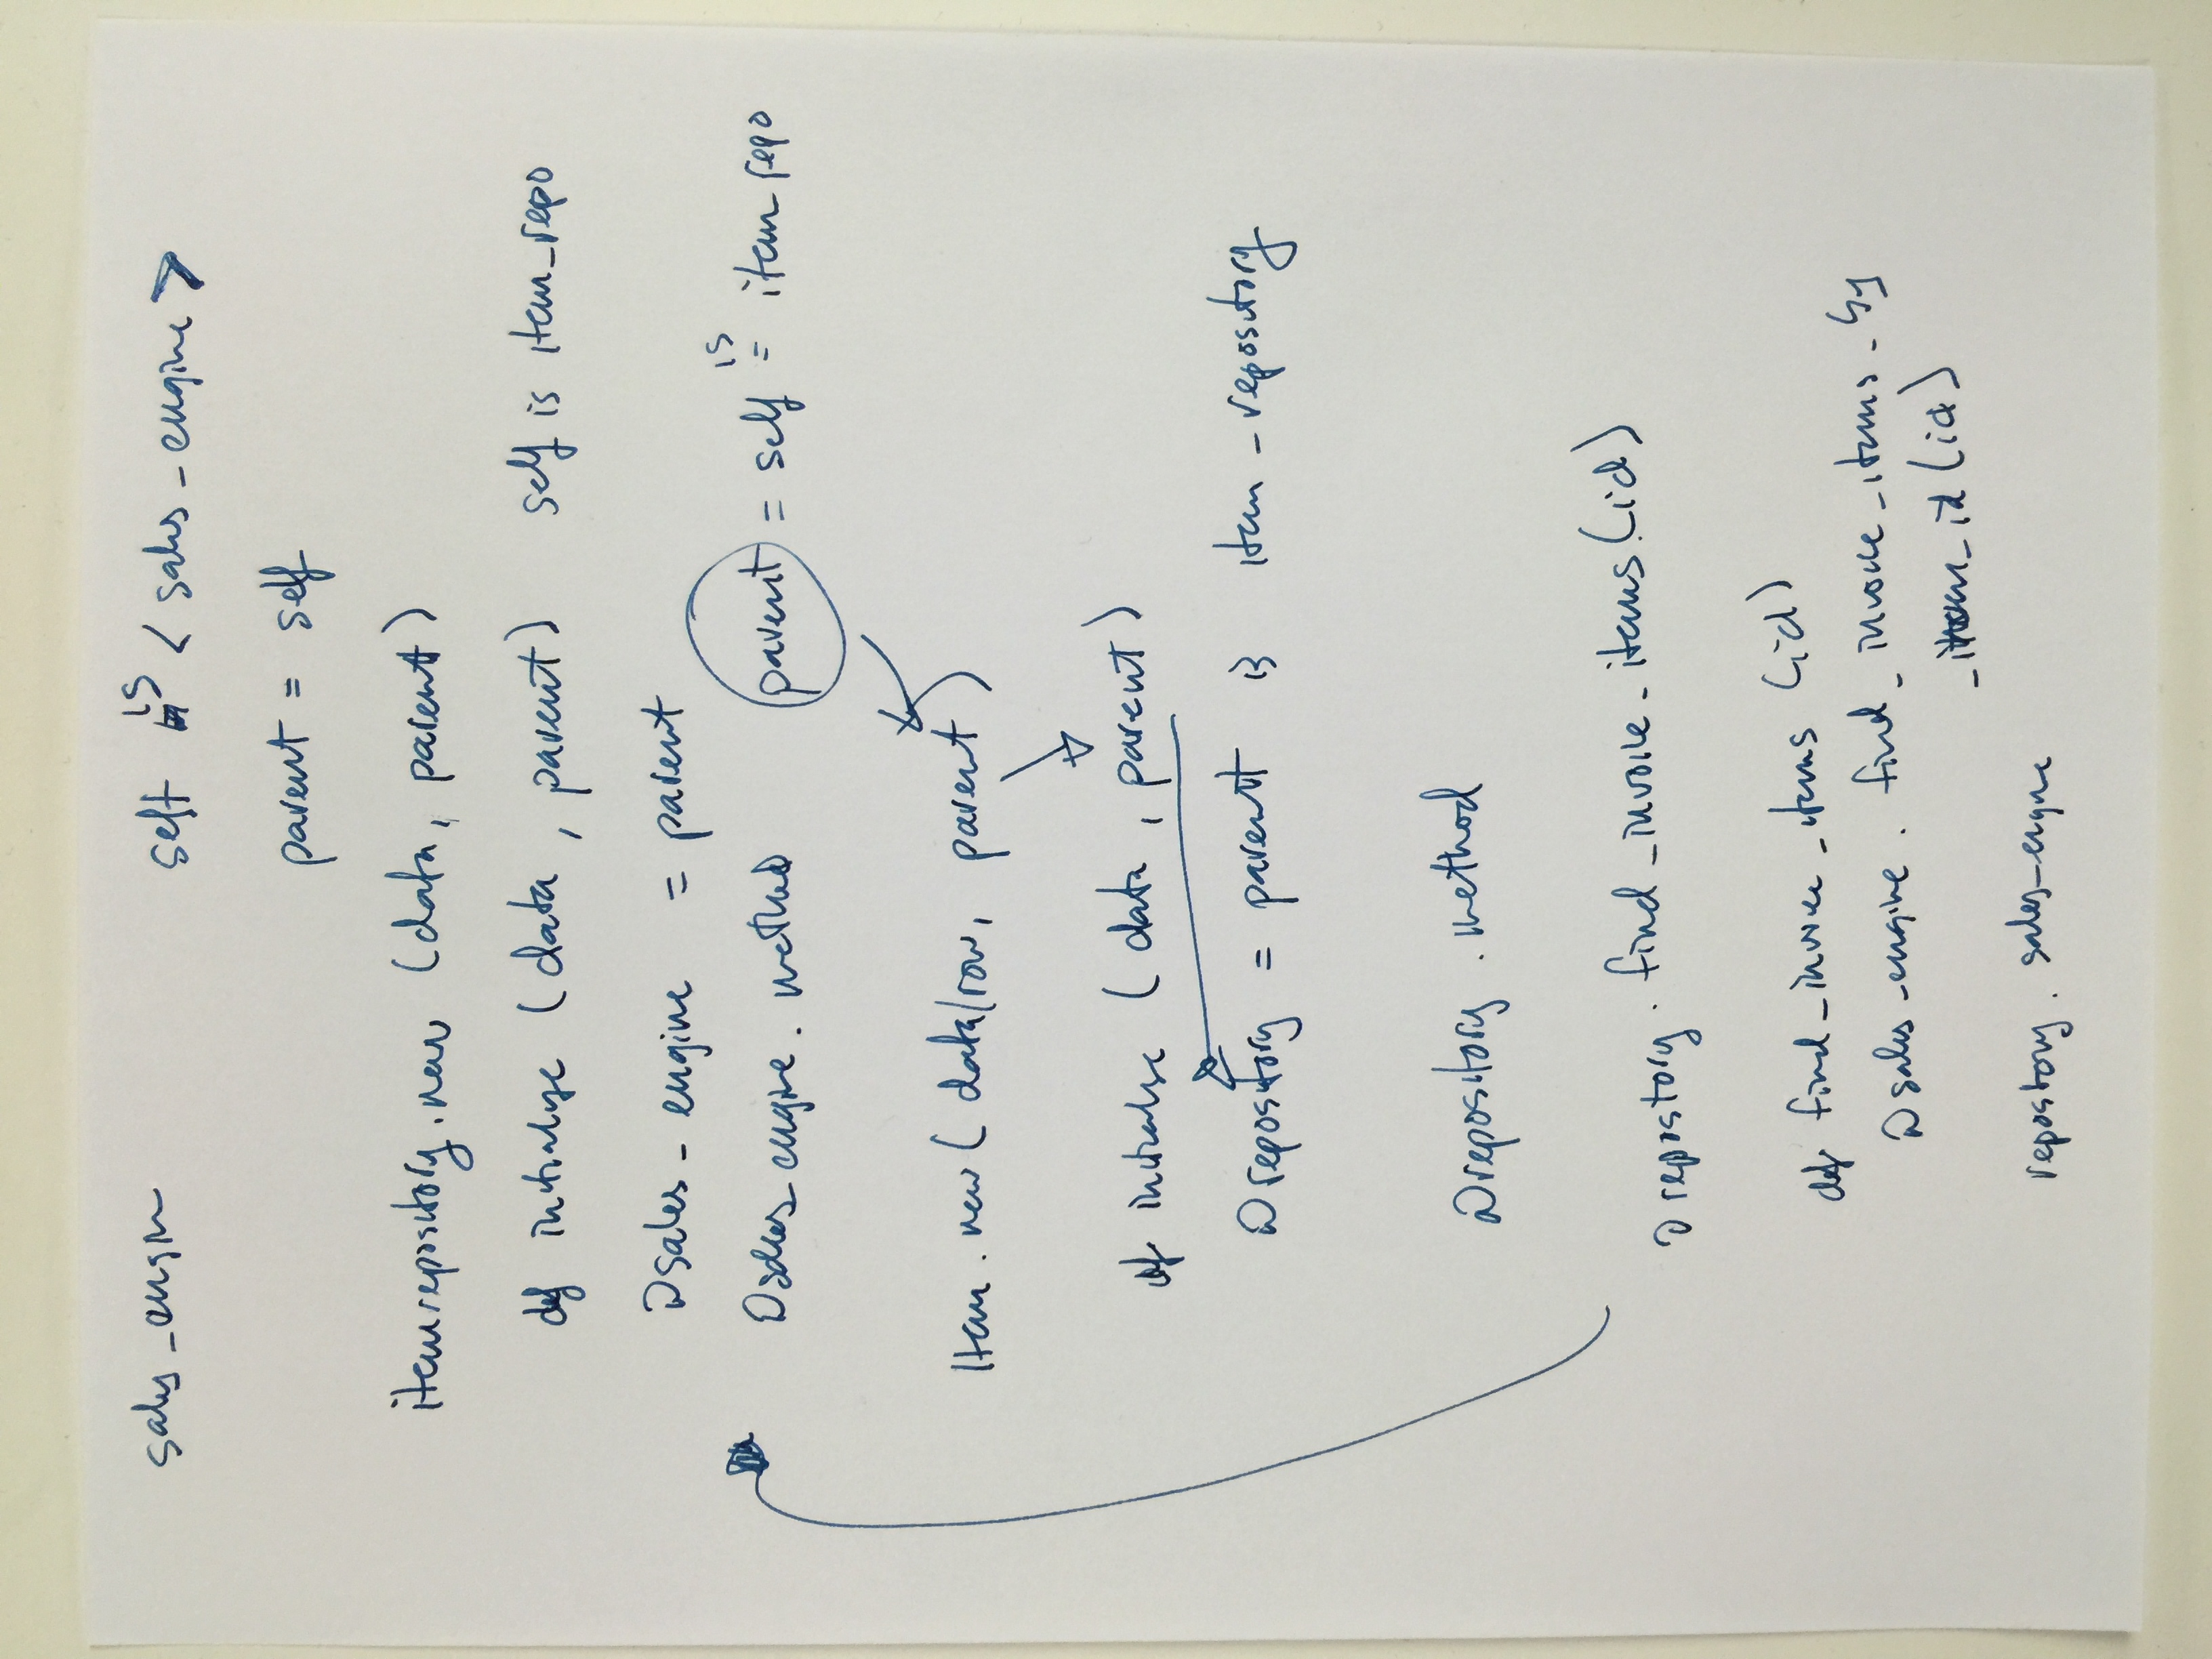 sales_engin self is < sales_engine >
parent = self
itemrepository.new (data, parent)
def initialize (data, parent) self is item_repo
@sales_engine = parent
@sales_engine.method parent = self is = item repo
Item.new (data/row, parent)
def initialize (data, parent)
@repository = parent is item_repository
@repository.method
@repository.find_invoice_items.(id)
def find_invoice_items (id)
@sales_engine.find_invoice_items_by
_item_id (id)
repository.sales_engine